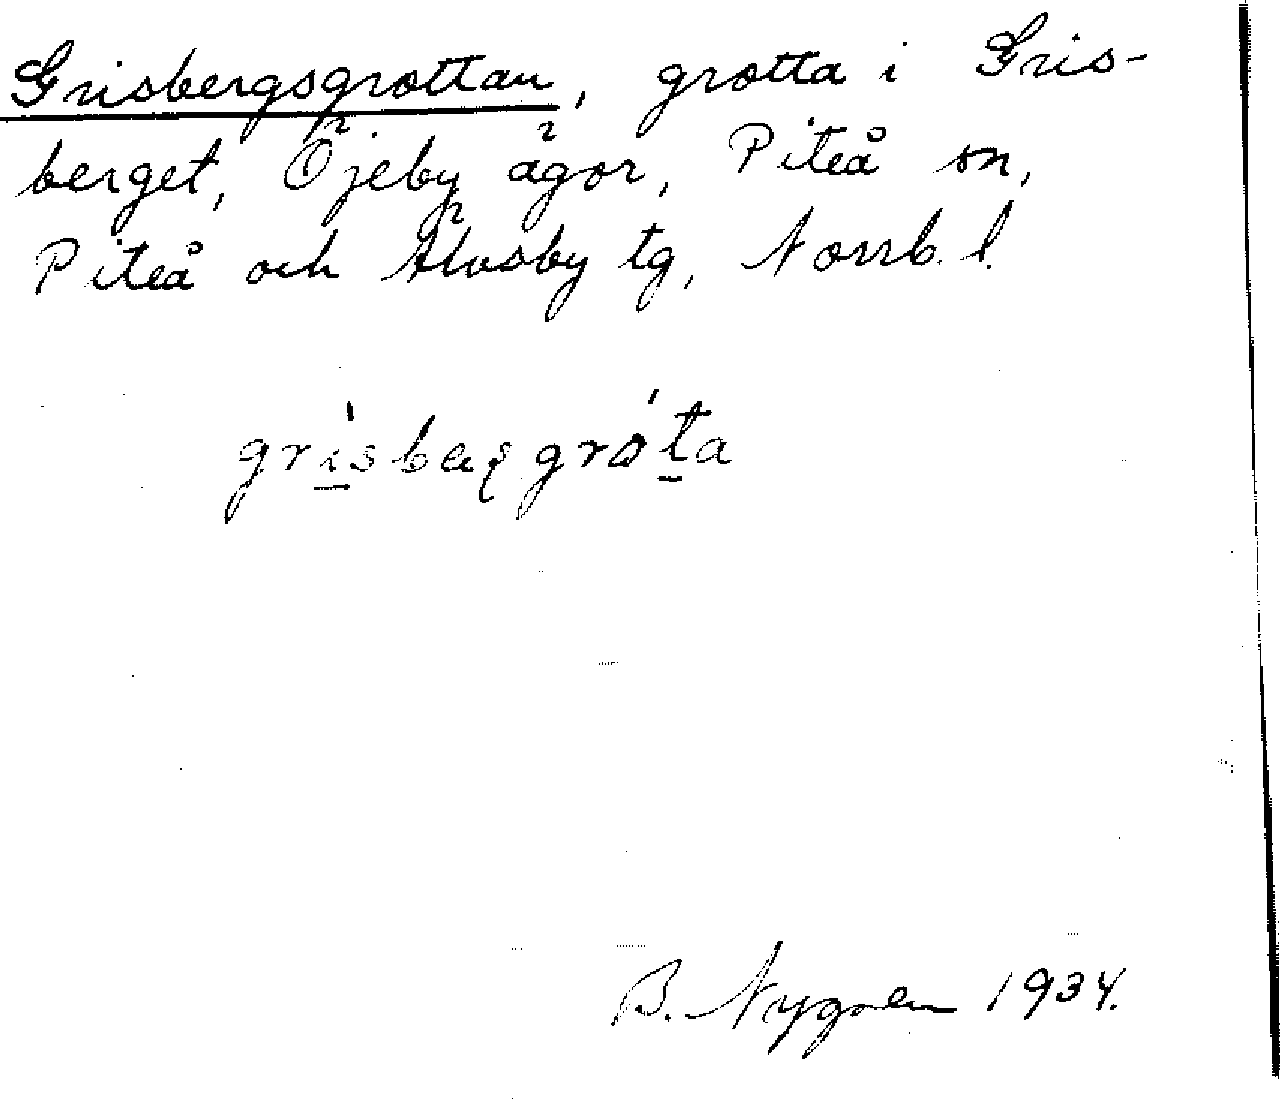 Grisbergsgrottan, grotta i Gris-
berget, Öjeby ägor, Piteå sn,
Piteå och Älvsby tg, Norrb. l.
B. Nygren 1934.